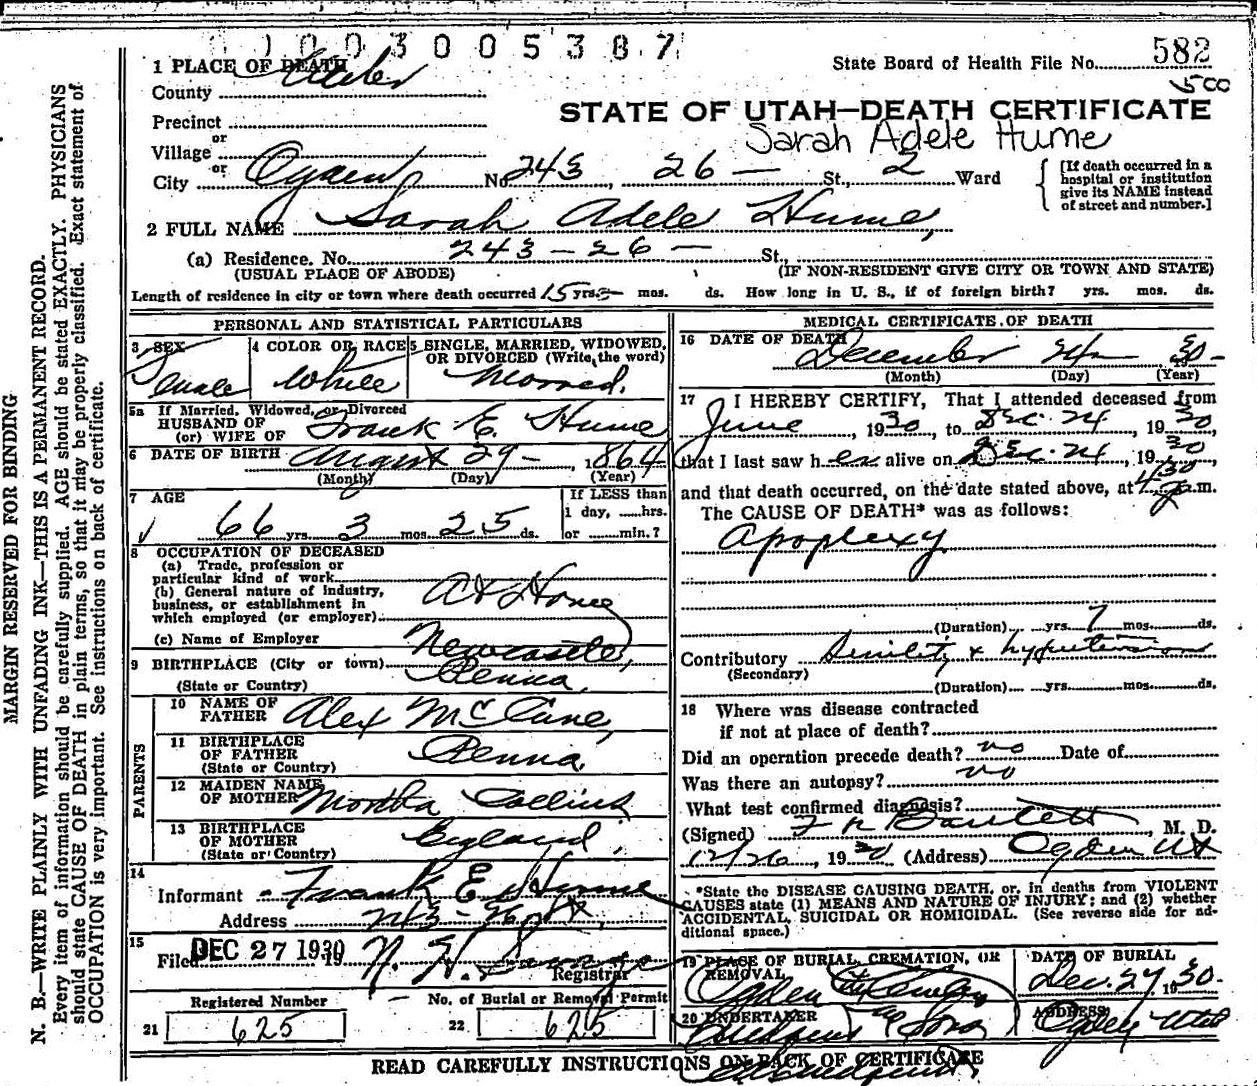 0 1 0 0 3 0 0 5 3 8 7
1 PLACE OF DEATH
State Board of Health File No. 582
500
County Weber
Precinct
STATE OF UTAH—DEATH CERTIFICATE
Sarah Adele Hume
or
Village
or
City Ogden No 243, 26 — St., 2 Ward
[If death occurred in a
hospital or institution
give its NAME instead
of street and number.]
2 FULL NAME Sarah Adele Hume,
(a) Residence. No. 243 - 26 - St.,
(USUAL PLACE OF ABODE) (IF NON-RESIDENT GIVE CITY OR TOWN AND STATE)
Length of residence in city or town where death occurred 15 yrs. mos. ds. How long in U. S., if of foreign birth? yrs. mos. ds.
PERSONAL AND STATISTICAL PARTICULARS
3 SEX
Female
4 COLOR OR RACE
White
5 SINGLE, MARRIED, WIDOWED,
OR DIVORCED (Write the word)
Married.
5a If Married, Widowed, or Divorced
HUSBAND OF
(or) WIFE OF Frank E. Hume
6 DATE OF BIRTH August 29 - , 1864
(Month) (Day) (Year)
7 AGE
66 yrs 3 mos 25 ds.
If LESS than
1 day, ......hrs.
or ......min.?
8 OCCUPATION OF DECEASED
(a) Trade, profession or
particular kind of work
(b) General nature of industry,
business, or establishment in
which employed (or employer) At Home
(c) Name of Employer
9 BIRTHPLACE (City or town) Newcastle,
(State or Country) Penna.
PARENTS
10 NAME OF
FATHER Alex McCune,
11 BIRTHPLACE
OF FATHER Penna.
(State or Country)
12 MAIDEN NAME
OF MOTHER Collins
13 BIRTHPLACE
OF MOTHER England.
(State or Country)
14
Informant Frank E. Hume
Address 243 - 26 St
15
Filed DEC 27 1930 19
Registrar
Registered Number
21 625
No. of Burial or Removal Permit
22 625
MEDICAL CERTIFICATE OF DEATH
16 DATE OF DEATH
December 24 30 -
(Month) (Day) (Year)
17 I HEREBY CERTIFY, That I attended deceased from
June , 1930, to Dec. 24, 1930
that I last saw her alive on Dec. 24, 1930,
and that death occurred, on the date stated above, at 4:30 p.m.
The CAUSE OF DEATH* was as follows:
Apoplexy
(Duration) yrs. 7 mos. ds.
Contributory Senility & hypertension
(Secondary)
(Duration) yrs. mos. ds.
18 Where was disease contracted
if not at place of death?
Did an operation precede death? no Date of
Was there an autopsy? no
What test confirmed diagnosis?
(Signed) Bartlett, M. D.
12/26, 1930 (Address) Ogden Ut
*State the DISEASE CAUSING DEATH, or, in deaths from VIOLENT
CAUSES state (1) MEANS AND NATURE OF INJURY; and (2) whether
ACCIDENTAL, SUICIDAL OR HOMICIDAL. (See reverse side for ad-
ditional space.)
19 PLACE OF BURIAL, CREMATION, OR
REMOVAL
Ogden City Cemetery
DATE OF BURIAL
Dec. 27 1930.
20 UNDERTAKER
& Sons
ADDRESS
Ogden Utah
READ CAREFULLY INSTRUCTIONS ON BACK OF CERTIFICATE
MARGIN RESERVED FOR BINDING
N. B.—WRITE PLAINLY WITH UNFADING INK—THIS IS A PERMANENT RECORD.
Every item of information should be carefully supplied. AGE should be stated EXACTLY. PHYSICIANS
should state CAUSE OF DEATH in plain terms, so that it may be properly classified. Exact statement of
OCCUPATION is very important. See instructions on back of certificate.